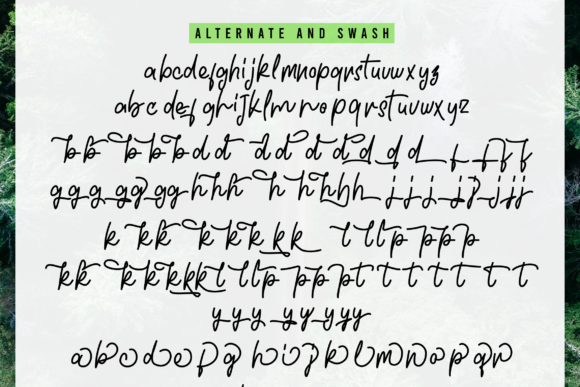 ALTERNATE AND SWASH
abcdefghijklmnopqrstuvwxyz
abcdefghijklmnopqrstuvwxyz
bb bbbdd dddddd d f fff
ggggggg hhh h h hhhh j j j jj jjj
k kk kkkkk t l l p p p p
kk kkkkkk l l l p p p p p t t t t t t t t
y y y y y y y y
abcdefghijklmnopqr